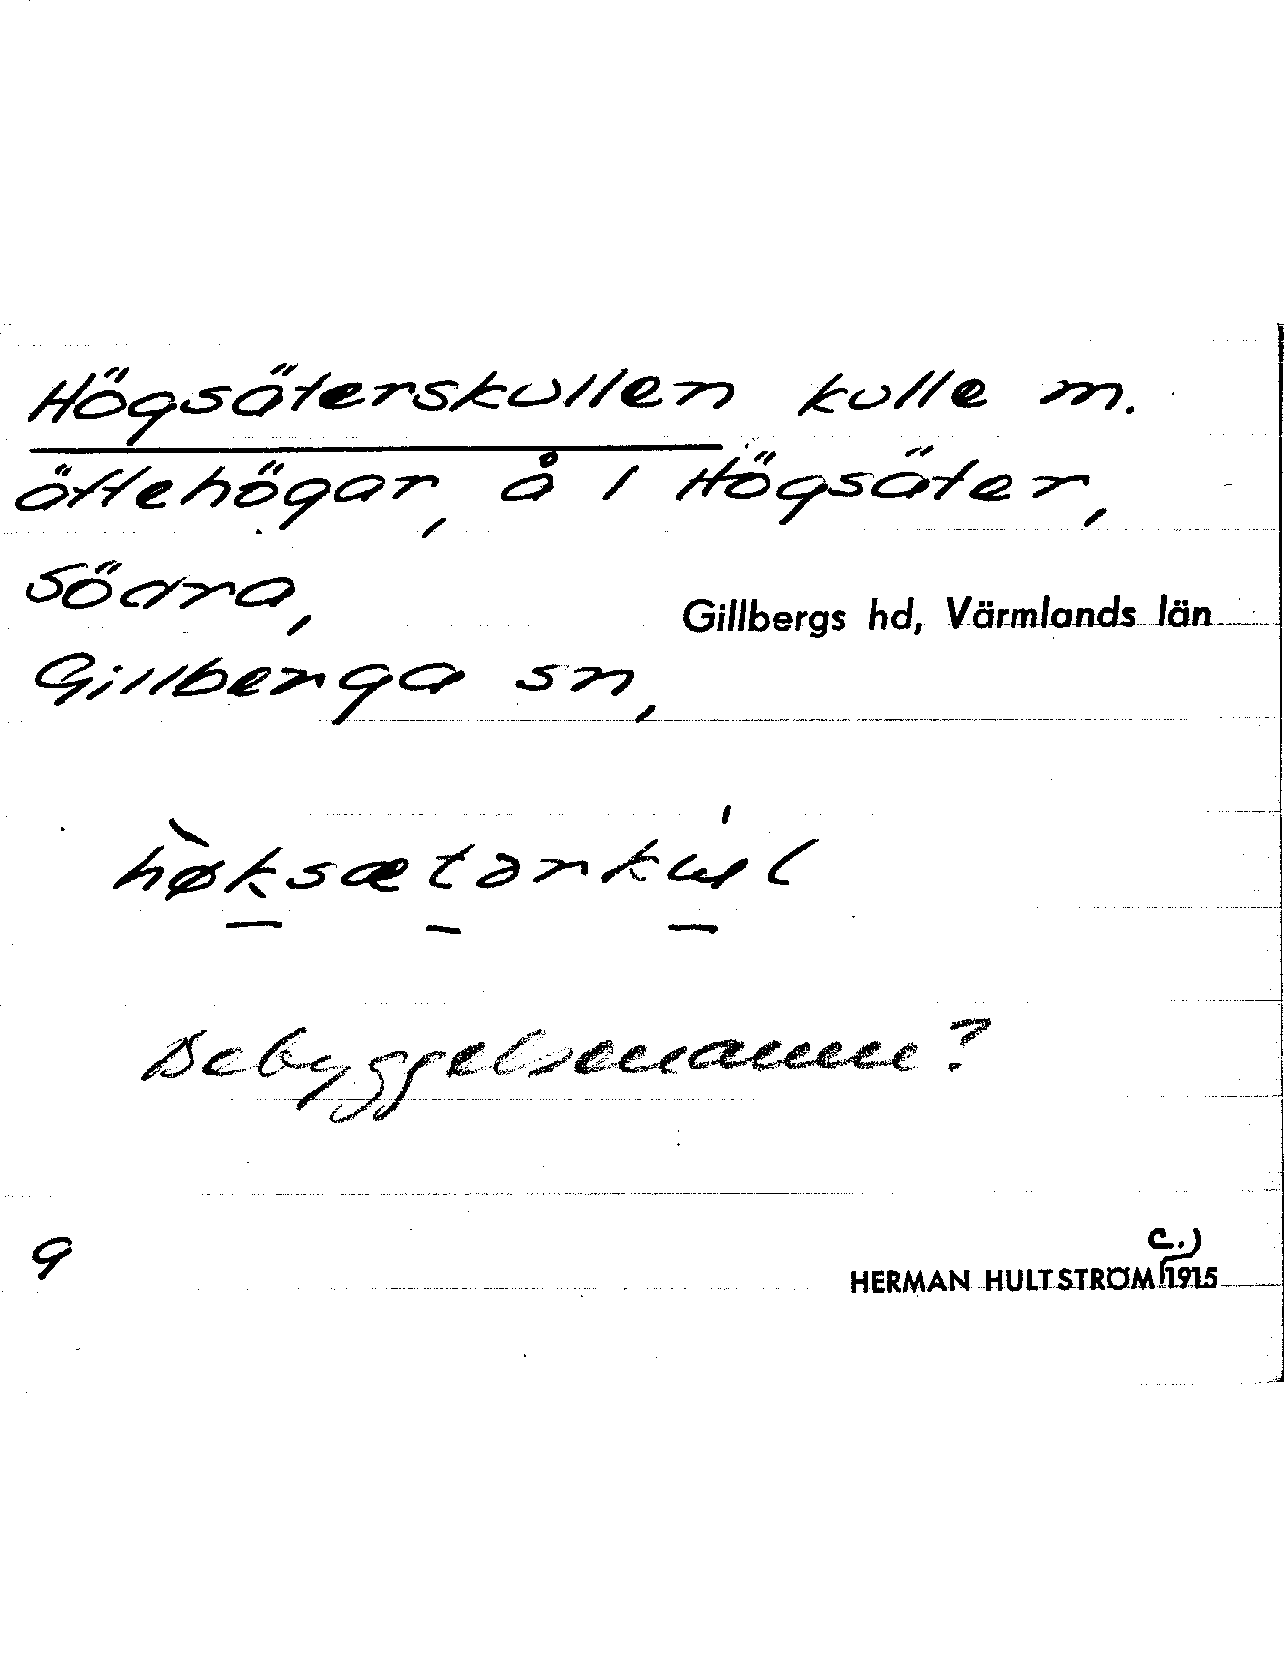 Högsäterskullen kulle m.
ättehögar, å 1 Högsäter,
Södra,
Gillbergs hd, Värmlands län
Gillberga sn,
Bebyggelsenamn?
9
c.)
HERMAN HULTSTRÖM 1915